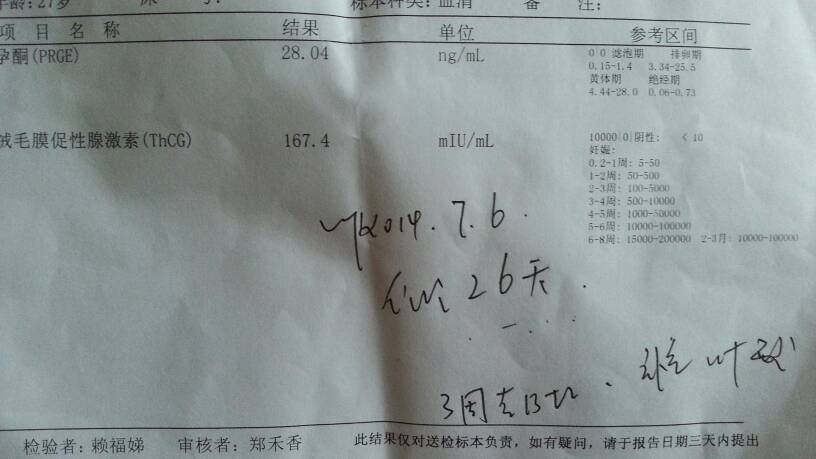 年龄:27岁 标本种类:血清 备 注:
项 目 名 称 结果 单位 参考区间
孕酮(PRGE) 28.04 ng/mL 0|0 滤泡期 排卵期
0.15-1.4 3.34-25.5
黄体期 绝经期
4.44-28.0 0.06-0.73
绒毛膜促性腺激素(ThCG) 167.4 mIU/mL 10000|0|阴性: < 10
妊娠:
0.2-1周: 5-50
1-2周: 50-500
2-3周: 100-5000
3-4周: 500-10000
4-5周: 1000-50000
5-6周: 10000-100000
6-8周: 15000-200000 2-3月: 10000-100000
2014.7.6.
26天.
3周
检验者: 赖福娣 审核者: 郑禾香 此结果仅对送检标本负责，如有疑问，请于报告日期三天内提出